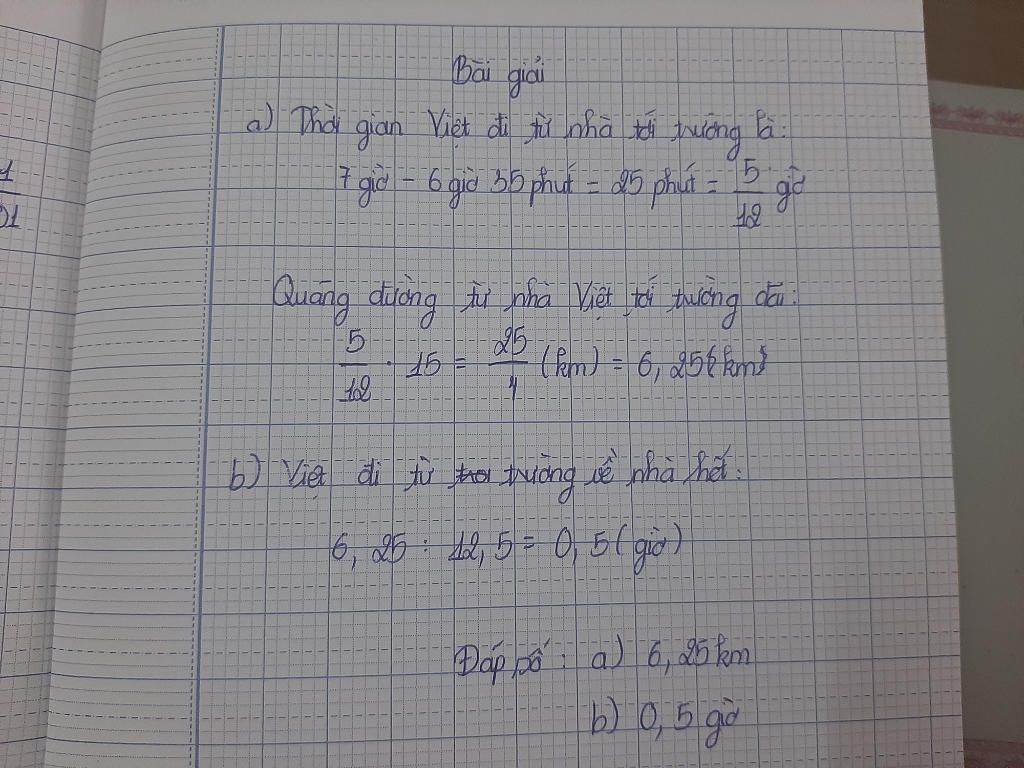 Bài giải
a) Thời gian Việt đi từ nhà tới trường là:
7 giờ - 6 giờ 35 phút = 25 phút = 5/12 giờ
Quãng đường từ nhà Việt tới trường dài:
5/12 . 15 = 25/4 (km) = 6,25 (km)
b) Việt đi từ trường về nhà hết:
6,25 : 12,5 = 0,5 (giờ)
Đáp số: a) 6,25 km
b) 0,5 giờ
1
01